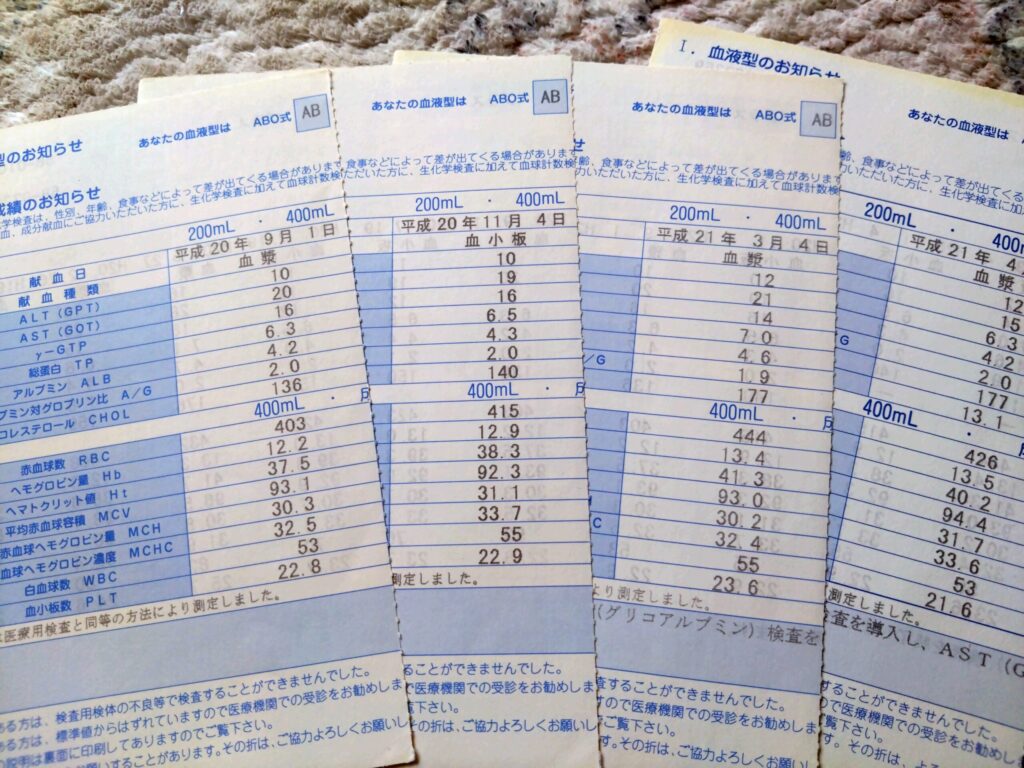 型のお知らせ
あなたの血液型は ABO式 AB
成績のお知らせ
学検査は、性別、年齢、食事などによって差が出てくる場合があります
血、成分献血にご協力いただいた方に、生化学検査に加えて血球計数検
200mL ・ 400mL
献血日 平成20年 9月 1日
献血種類 血漿
ALT(GPT) 10
AST(GOT) 20
γ-GTP 16
総蛋白 TP 6.3
アルブミン ALB 4.2
ブミン対グロブリン比 A/G 2.0
コレステロール CHOL 136
400mL ・
赤血球数 RBC 403
ヘモグロビン量 Hb 12.2
ヘマトクリット値 Ht 37.5
平均赤血球容積 MCV 93.1
赤血球ヘモグロビン量 MCH 30.3
血球ヘモグロビン濃度 MCHC 32.5
白血球数 WBC 53
血小板数 PLT 22.8
は医療用検査と同等の方法により測定しました。
ある方は、検査用検体の不良等で検査することができませんでした。
ある方は、標準値からはずれていますので医療機関での受診をお勧めしま
の説明は裏面に印刷してありますのでご覧下さい。
願いすることがあります。その折は、ご協力よろしくお願いし
あなたの血液型は ABO式 AB
食事などによって差が出てくる場合があります
いただいた方に、生化学検査に加えて血球計数検
200mL ・ 400mL
平成20年11月 4日
血小板
10
19
16
6.5
4.3
2.0
140
400mL ・
415
12.9
38.3
92.3
31.1
33.7
55
22.9
測定しました。
することができませんでした。
で医療機関での受診をお勧めしま
ご覧下さい。
その折は、ご協力よろしくお願いし
あなたの血液型は ABO式 AB
せ
齢、食事などによって差が出てくる場合があります
いただいた方に、生化学検査に加えて血球計数検
200mL ・ 400mL
平成21年 3月 4日
血漿
12
21
14
7.0
4.6
A/G 1.9
177
400mL ・
444
13.4
41.3
93.0
30.2
C 32.4
55
23.6
測定しました。
(グリコアルブミン)検査を
査することができませんでした。
ので医療機関での受診をお勧めしま
ご覧下さい。
す。その折は、ご協力よろしくお願いし
I. 血液型のお知らせ
あなたの血液型は
齢、食事などによって差が出てくる
いただいた方に、生化学検査に加
200mL ・ 400
平成21年 4
血漿
12
15
G 6.3
4.2
2.0
177
13.1
400mL ・
426
13.5
40.2
94.4
31.7
33.6
53
21.6
測定しました。
検査を導入し、AST(G
することができませんでした。
で医療機関での受診をお勧め
覧下さい。
す。その折は、